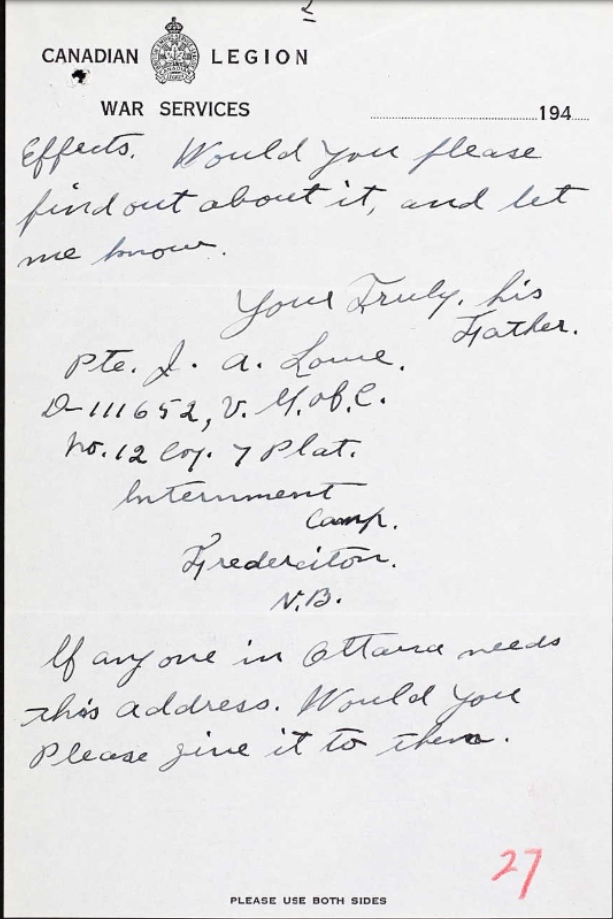 2
CANADIAN LEGION
WAR SERVICES
194
Effects. Would you please
find out about it, and let
me know.
Your Truly, his
Father.
Pte. J. A. Lowe.
D-111652, V. G. of C.
No. 12 Coy. 7 Plat.
Internment
Camp.
Frederciton.
N.B.
If any one in Ottawa needs
this address. Would you
Please give it to them.
27
PLEASE USE BOTH SIDES